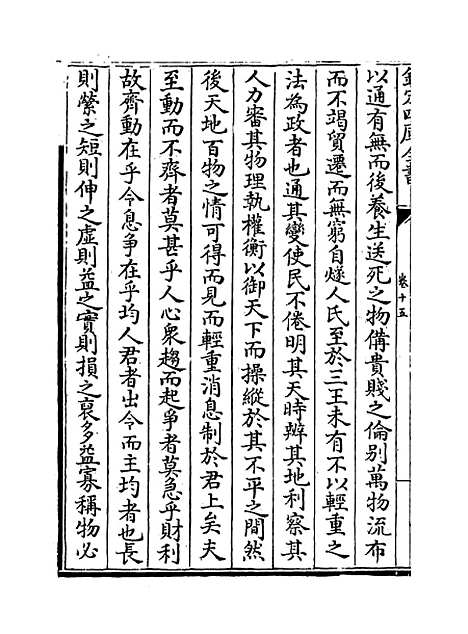 欽定四庫全書
卷十五
以通有無而後養生送死之物備貴賤之倫别萬物流布
而不竭貿遷而無窮自燧人氏至於三王未有不以輕重之
法為政者也通其變使民不倦明其天時辨其地利察其
人力審其物理執權衡以御天下而操縱於其不平之間然
後天地百物之情可得而見而輕重消息制於君上矣夫
至動而不齊者莫甚乎人心衆趨而起爭者莫急乎財利
故齊動在乎令息爭在乎均人君者出令而主均者也長
則縈之短則伸之虛則益之實則損之裒多益寡稱物必